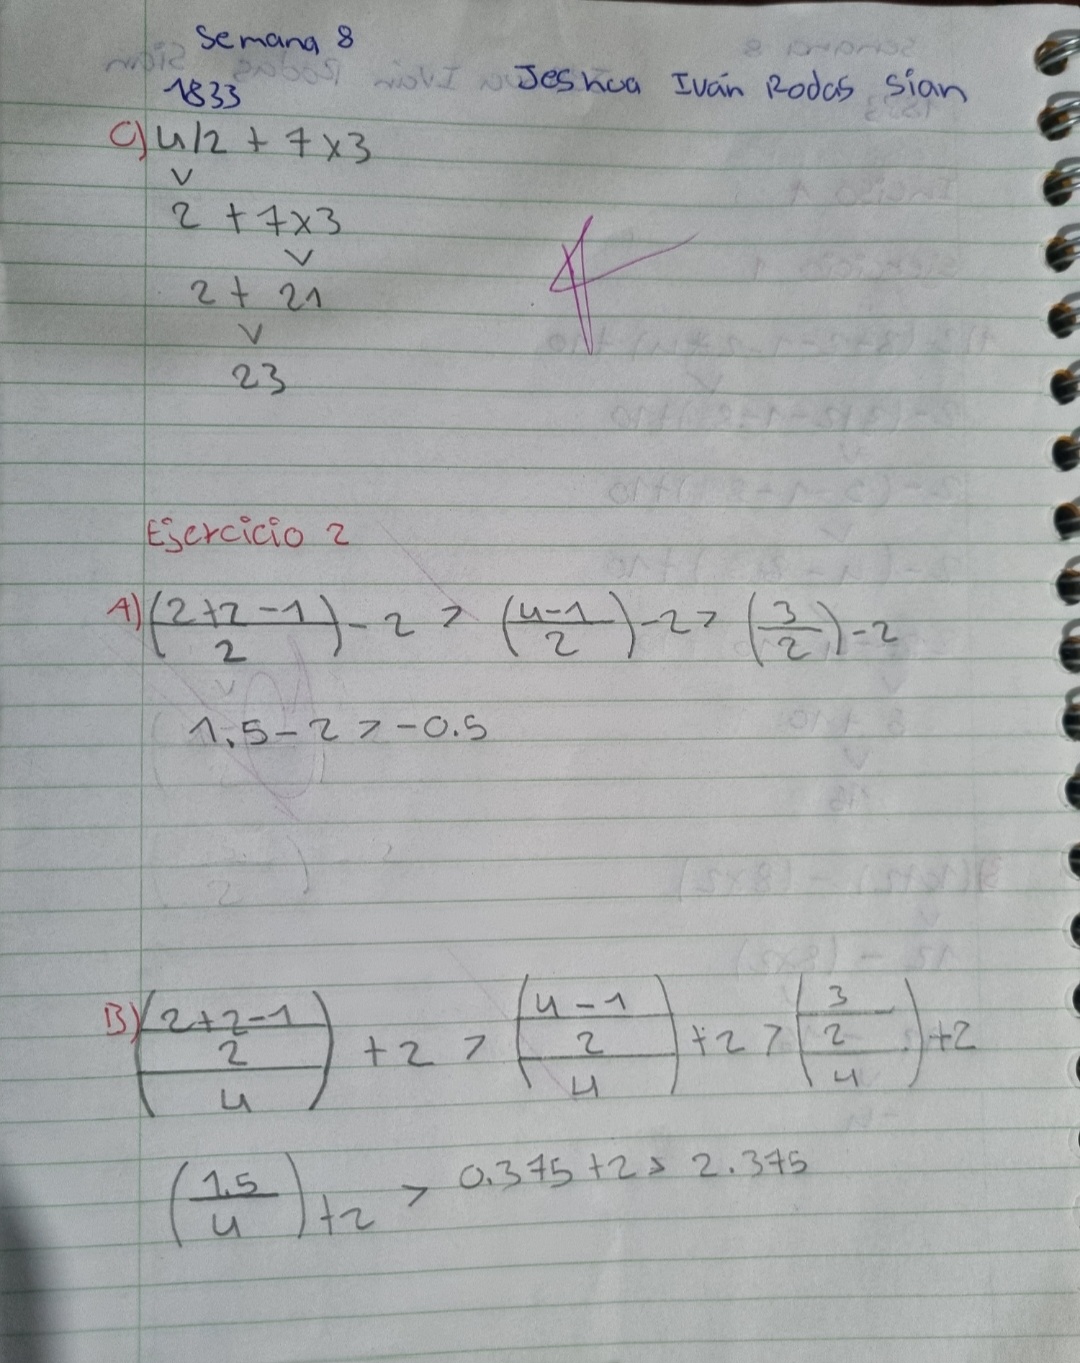 Semana 8
1833
Jeshua Iván Rodas Sian
C) 4/2 + 7x3
2 + 7x3
2 + 21
23
Ejercicio 2
A) (2+2-1/2) - 2 > (4-1/2) - 2 > (3/2) - 2
1.5 - 2 > -0.5
B) (2+2-1/2/4) + 2 > (4-1/2/4) + 2 > (3/2/4) + 2
(1.5/4) + 2 > 0.375 + 2 > 2.375